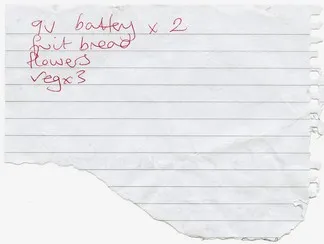 9v battery x 2
fruit bread
flowers
veg x 3